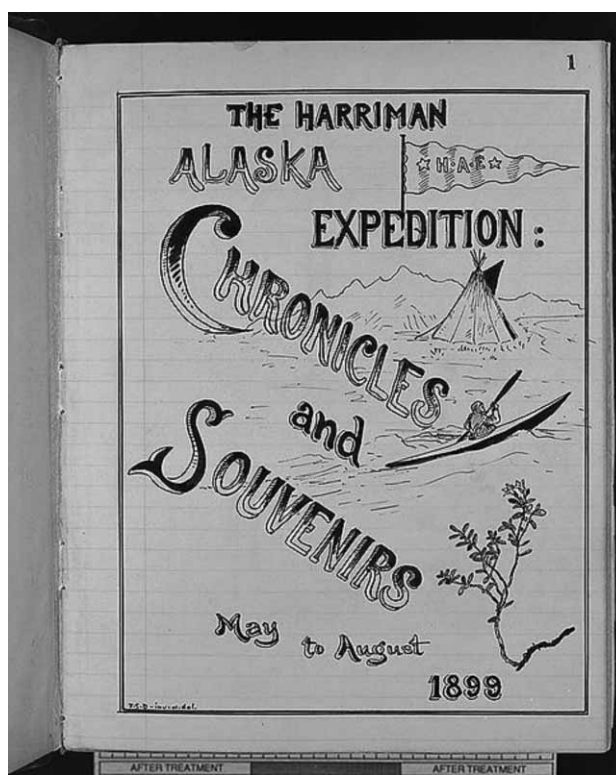 1
THE HARRIMAN
ALASKA
H·A·E
EXPEDITION:
CHRONICLES
and
SOUVENIRS
May to August
1899
F.S.D - inv. et. del.
AFTER TREATMENT
AFTER TREATMENT